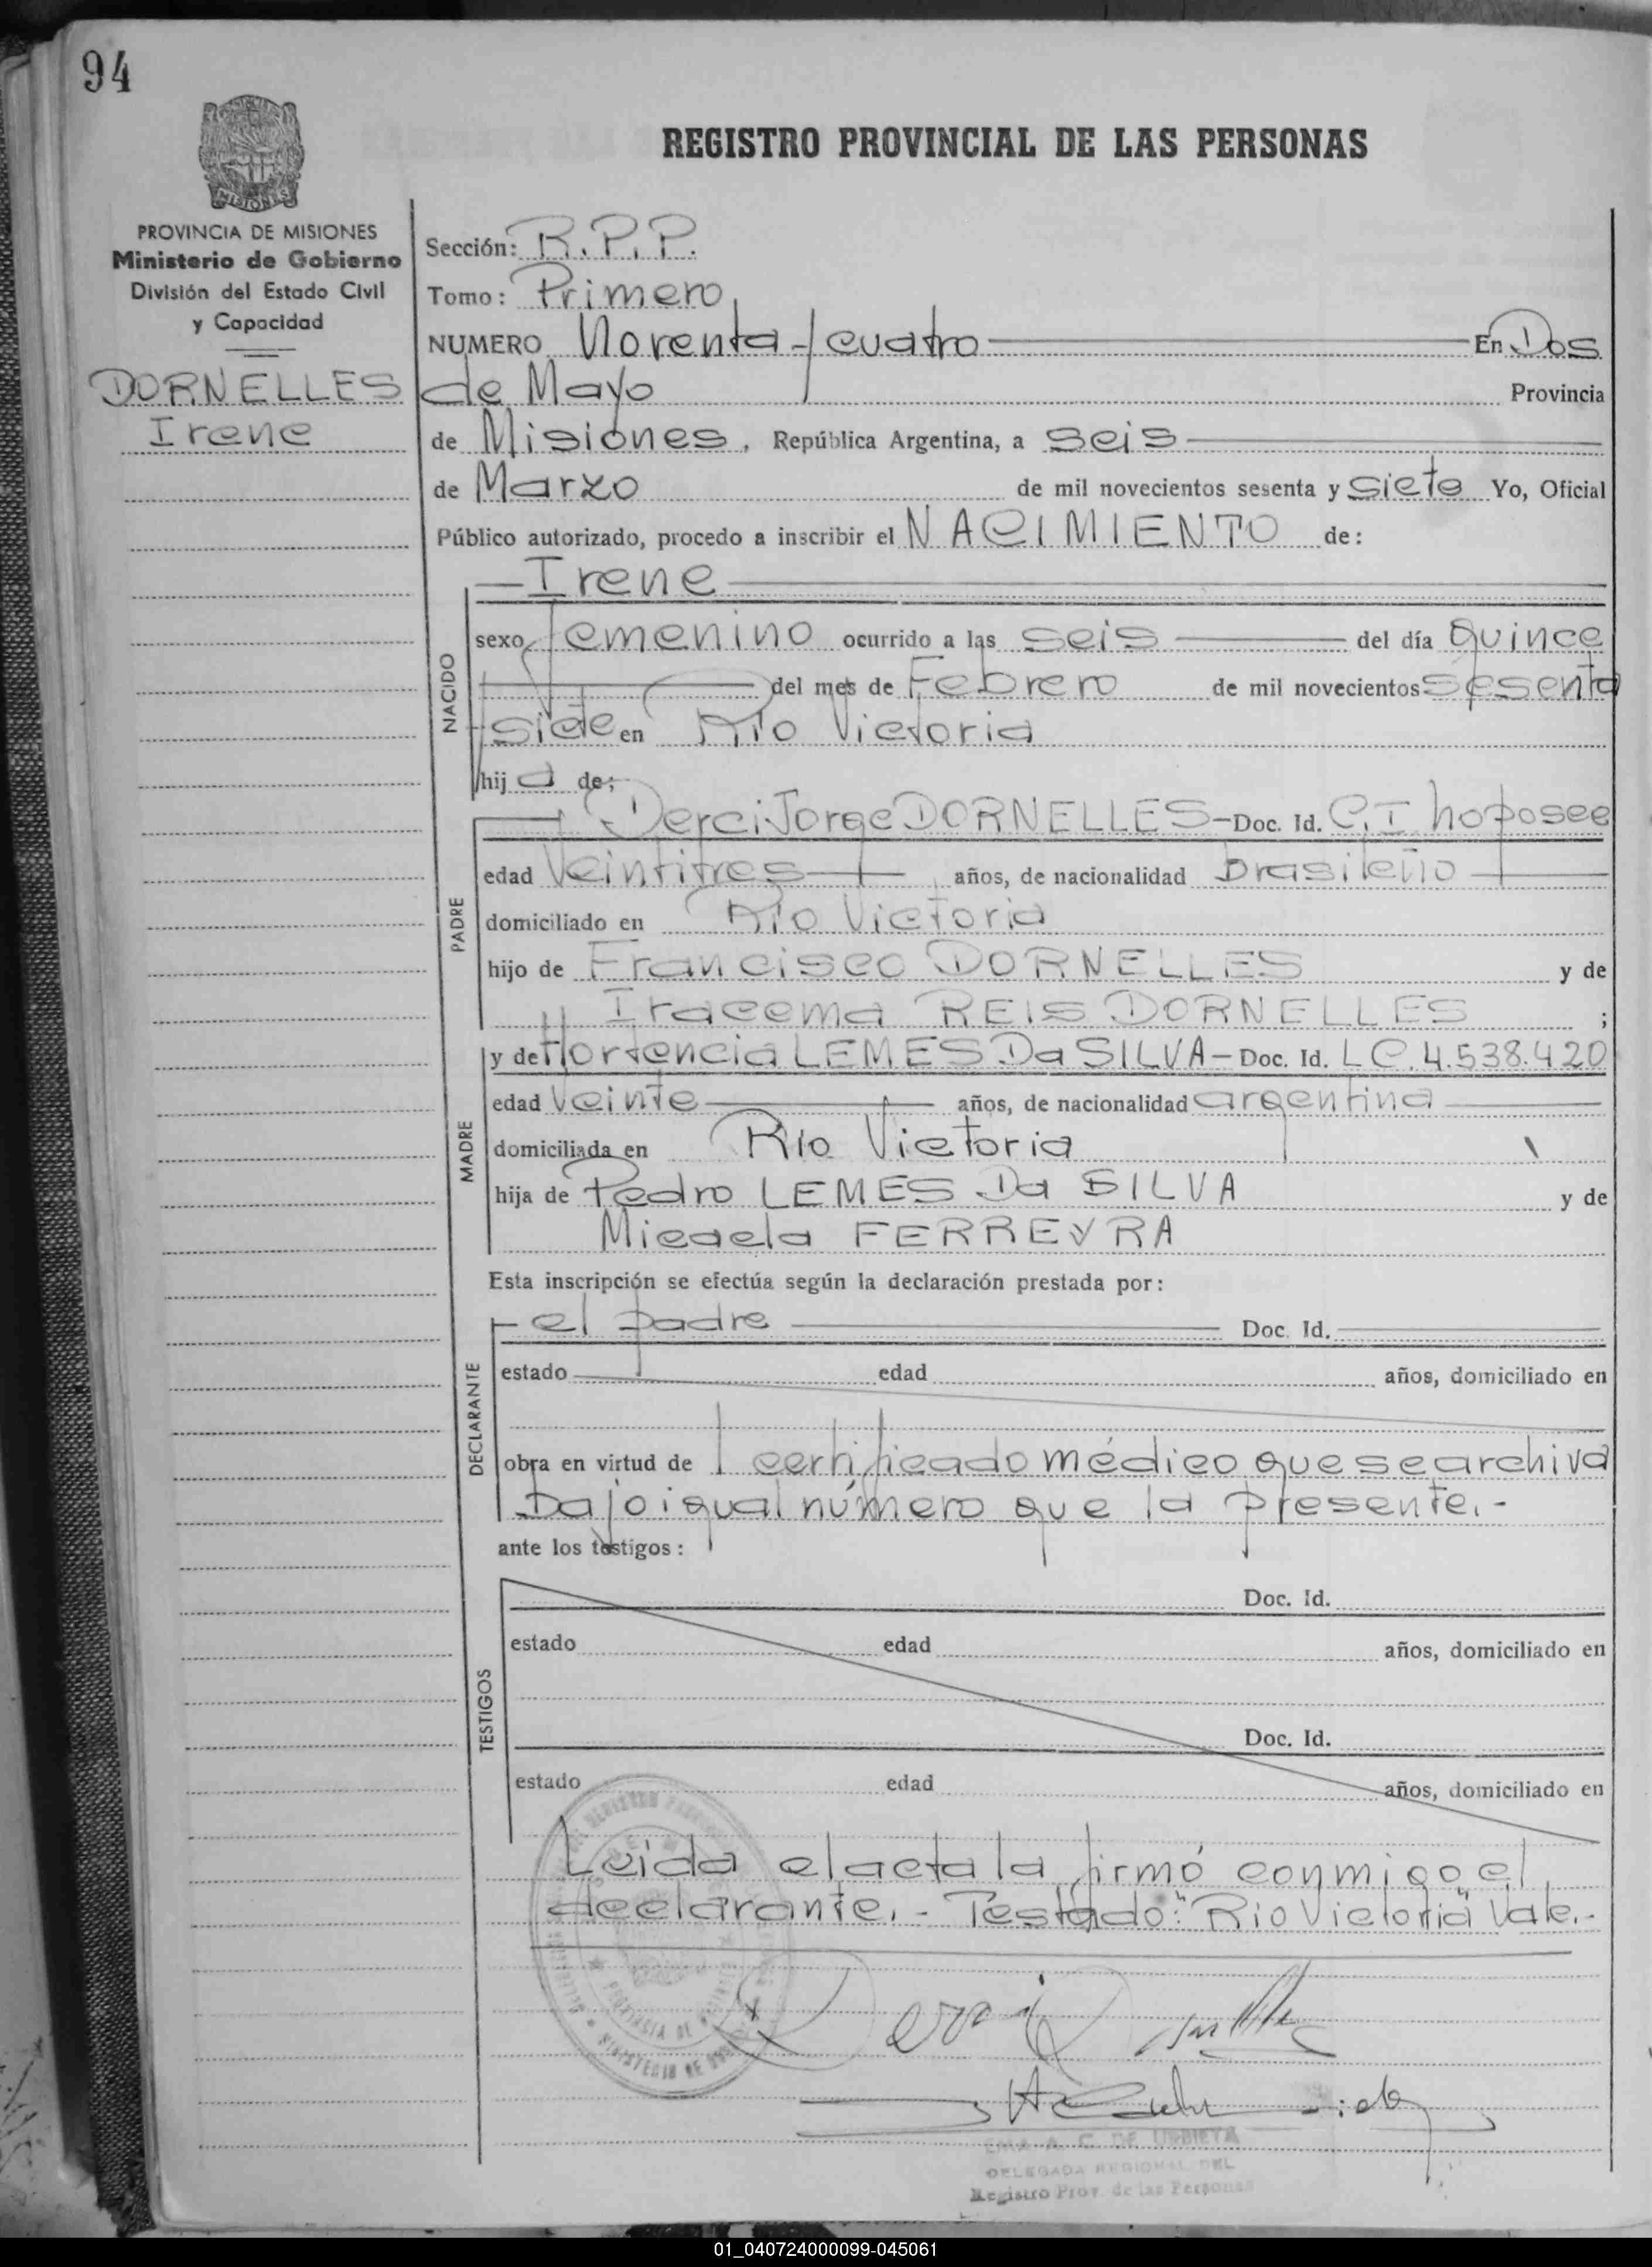 94
REGISTRO PROVINCIAL DE LAS PERSONAS
MISIONES
PROVINCIA DE MISIONES
Ministerio de Gobierno
División del Estado Civil
y Capacidad
DORNELLES
Irene
Sección: R.P.P.
Tomo: Primero
NUMERO Noventa y cuatro En Dos
de Mayo Provincia
de Misiones, República Argentina, a seis
de Marzo de mil novecientos sesenta y siete Yo, Oficial
Público autorizado, procedo a inscribir el NACIMIENTO de:
NACIDO
Irene
sexo femenino ocurrido a las seis del día quince
del mes de Febrero de mil novecientos sesenta
y siete en Río Victoria
hija de;
PADRE
Derci Jorge DORNELLES - Doc. Id. C.I no posee
edad Veintitres años, de nacionalidad brasileño
domiciliado en Río Victoria
hijo de Francisco DORNELLES y de
Iracema REIS DORNELLES ;
MADRE
y de Hortencia LEMES Da SILVA - Doc. Id. LC. 4.538.420
edad Veinte años, de nacionalidad argentina
domiciliada en Río Victoria
hija de Pedro LEMES Da SILVA y de
Micaela FERREYRA
Esta inscripción se efectúa según la declaración prestada por:
DECLARANTE
el padre Doc. Id.
estado edad años, domiciliado en
obra en virtud de certificado médico que se archiva
bajo igual número que la presente.-
ante los testigos:
TESTIGOS
Doc. Id.
estado edad años, domiciliado en
Doc. Id.
estado edad años, domiciliado en
Leida el acta la firmó conmigo, el
declarante.- Testado: "Rio Victoria" Vale.-
A. C. DE URBIETA
DELEGADA REGIONAL DEL
Registro Prov. de las Personas
01_040724000099-045061